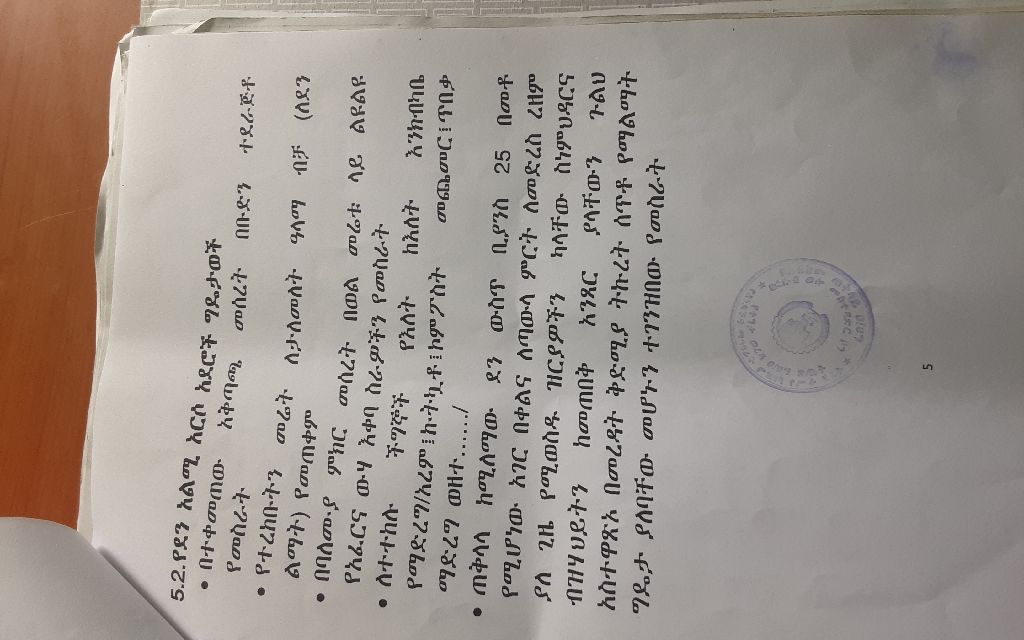 5.2.የደን አልሚ እርስ አደሮች ግዴታዎች
• በተቀመጠው አቅጣጫ መሰረት በቡድን ተደራጅቶ
የመስራት
• የተረከቡትን መሬት ለታለመለት ዓላማ ብቻ (ለደን
ልማት) የመጠቀም
• በባለሙያ ምክር መሰረት በወል መሬቱ ላይ ልዩልዩ
የአፈርና ውሃ እቀባ ስራዎችን የመስራት
• ለተተከሉ ችግኞች የእለት ከእለት እንክብካቤ
የማድረግ/አረም፤ኩትኳቶ፤ኮምፖስት መጨመር፤ጥበቃ
ማድረግ ወዘተ....../
• ጠቅላላ ከሚለማው ደን ውስጥ ቢያንስ 25 በመቶ
የሚሆነው አገር በቀልና ለጣውላ ምርት ለመድረስ ረዘም
ያለ ጊዜ የሚወስዱ ዝርያዎችን ካላቸው ስነምህዳርና
ብዝሃህይትን ከመጠበቅ አንጻር ያላቸውን ጉልህ
አስተዋጽኦ በመረዳት ቅድሚያ ትኩረት ሰጥቶ የማልማት
ግዴታ ያለባቸው መሆኑን ተገንዝበው የመስራት
5